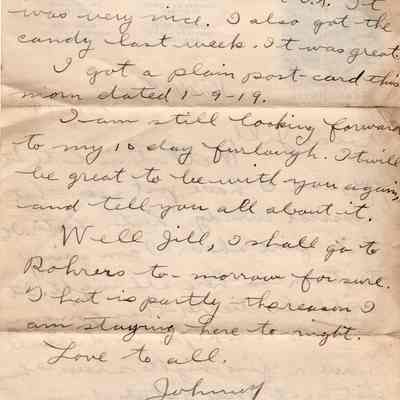 It
was very nice. I also got the
candy last week. It was great.
I got a plain post-card this
morn dated 1-9-19.
I am still looking forward
to my 10 day furlough. It will
be great to be with you again,
and tell you all about it.
Well Jill, I shall go to
Rohrers to-morrow for sure.
That is partly the reason I
am staying here to-night.
Love to all.
Johnny